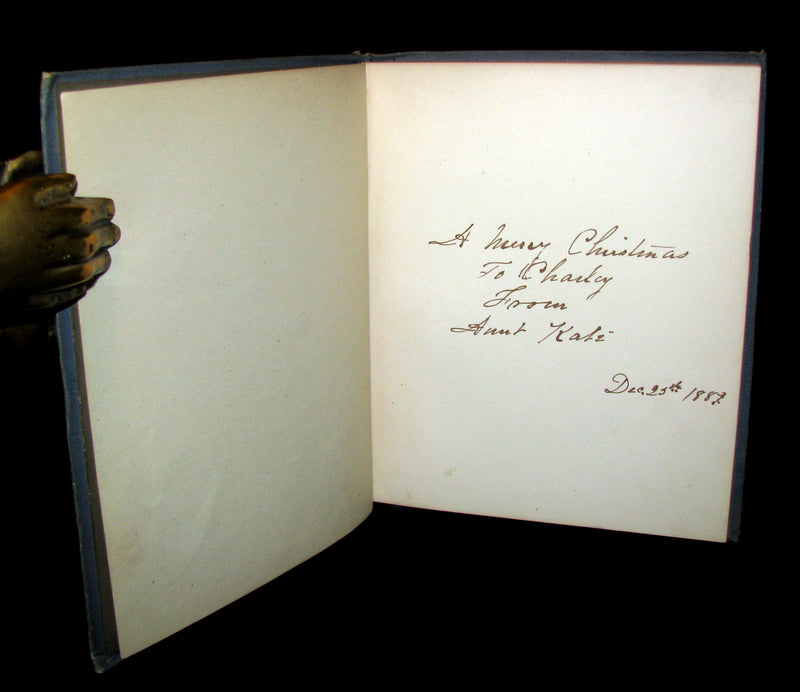 A Merry Christmas
To Charley
From
Aunt Kate
Dec. 25th 1889.